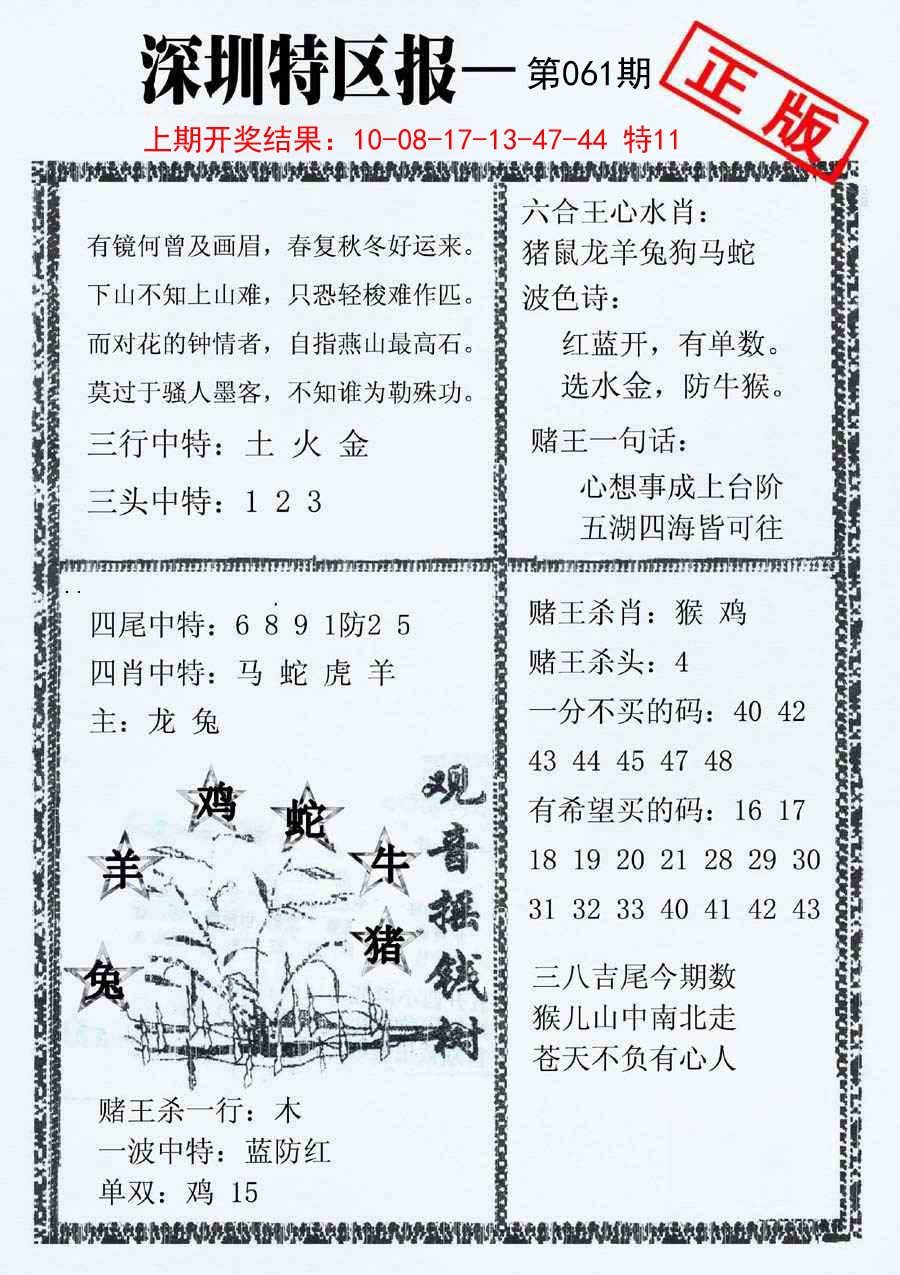 深圳特区报—第061期
正版
上期开奖结果：10-08-17-13-47-44 特11
有镜何曾及画眉，春复秋冬好运来。
下山不知上山难，只恐轻梭难作匹。
而对花的钟情者，自指燕山最高石。
莫过于骚人墨客，不知谁为勒殊功。
三行中特：土 火 金
三头中特：1 2 3
六合王心水肖：
猪鼠龙羊兔狗马蛇
波色诗：
红蓝开，有单数。
选水金，防牛猴。
赌王一句话：
心想事成上台阶
五湖四海皆可往
四尾中特：6 8 9 1防2 5
四肖中特：马 蛇 虎 羊
主：龙 兔
鸡
蛇
羊
牛
猪
兔
观音摇钱树
赌王杀一行：木
一波中特：蓝防红
单双：鸡 15
赌王杀肖：猴 鸡
赌王杀头：4
一分不买的码：40 42
43 44 45 47 48
有希望买的码：16 17
18 19 20 21 28 29 30
31 32 33 40 41 42 43
三八吉尾今期数
猴儿山中南北走
苍天不负有心人